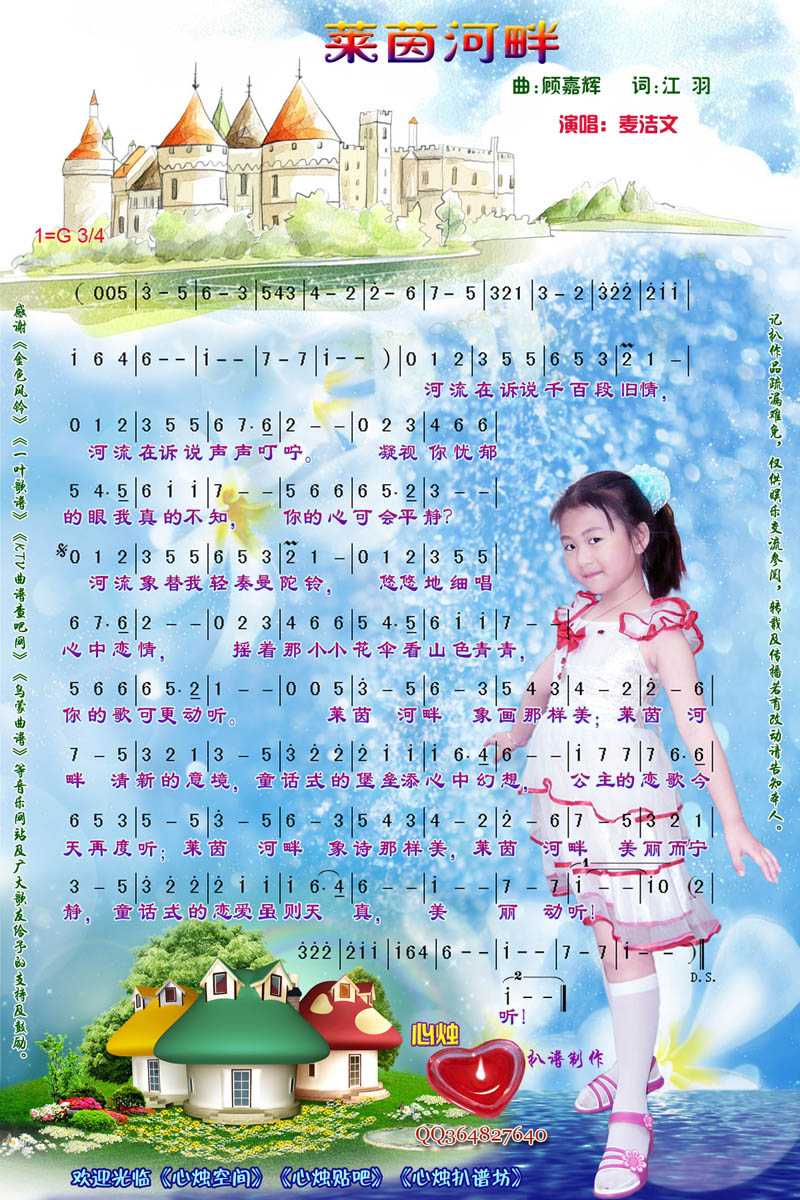 莱茵河畔
曲:顾嘉辉 词:江 羽
演唱: 麦洁文
1=G 3/4
( 0 0 5 | 3̇ - 5 | 6 - 3 | 5 4 3 | 4 - 2 | 2̇ - 6 | 7 - 5 | 3 2 1 | 3 - 2 | 3̇ 2̇ 2̇ | 2̇ i i |
i 6 4 | 6 - - | i - - | 7 - 7 | i - - ) | 0 1 2 | 3 5 5 | 6 5 3 | 2 1 - |
河流在诉说千百段旧情,
0 1 2 | 3 5 5 | 6 7. 6 | 2 - - | 0 2 3 | 4 6 6 |
河流在诉说声声叮咛。 凝视 你忧郁
5 4. 5 | 6 i i | 7 - - | 5 6 6 | 6 5. 2 | 3 - - |
的眼我真的不知, 你的心可会平静?
0 1 2 | 3 5 5 | 6 5 3 | 2 1 - | 0 1 2 | 3 5 5 |
河流象替我轻奏曼陀铃, 悠悠地细唱
6 7. 6 | 2 - - | 0 2 3 | 4 6 6 | 5 4. 5 | 6 i i | 7 - - |
心中恋情, 摇着那小小花伞看山色青青,
5 6 6 | 6 5. 2 | 1 - - | 0 0 5 | 3̇ - 5 | 6 - 3 | 5 4 3 | 4 - 2 | 2̇ - 6 |
你的歌可更动听。 莱茵 河畔 象画那样美; 莱茵 河
7 - 5 | 3 2 1 | 3 - 5 | 3̇ 2̇ 2̇ | 2̇ i i | i 6. 4 | 6 - - | i 7 7 | 7 6. 6 |
畔 清新的意境, 童话式的堡垒添心中幻想, 公主的恋歌今
6 5 3 | 5 - 5 | 3̇ - 5 | 6 - 3 | 5 4 3 | 4 - 2 | 2̇ - 6 | 7 - 5 | 3 2 1 |
天再度听; 莱茵 河畔 象诗那样美, 莱茵 河畔 美丽而宁
3 - 5 | 3̇ 2̇ 2̇ | 2̇ i i | i 6. 4 | 6 - - | i - - | 7 - 7 | i - - | i 0 ( 2̇ |
静, 童话式的恋爱虽则天 真, 美 丽 动听!
1
3̇ 2̇ 2̇ | 2̇ i i | i 6 4 | 6 - - | i - - | 7 - 7 | i - - )
D.S.
2
i - -
听!
感谢《金色风铃》《一叶歌谱》《KTV曲谱查吧网》《乌蒙曲谱》等音乐网站及广大歌友给予的支持及鼓励。
记扒作品疏漏难免, 仅供娱乐交流参阅, 转载及传播若有改动请告知本人。
心烛
扒谱制作
QQ364827640
欢迎光临《心烛空间》《心烛贴吧》《心烛扒谱坊》